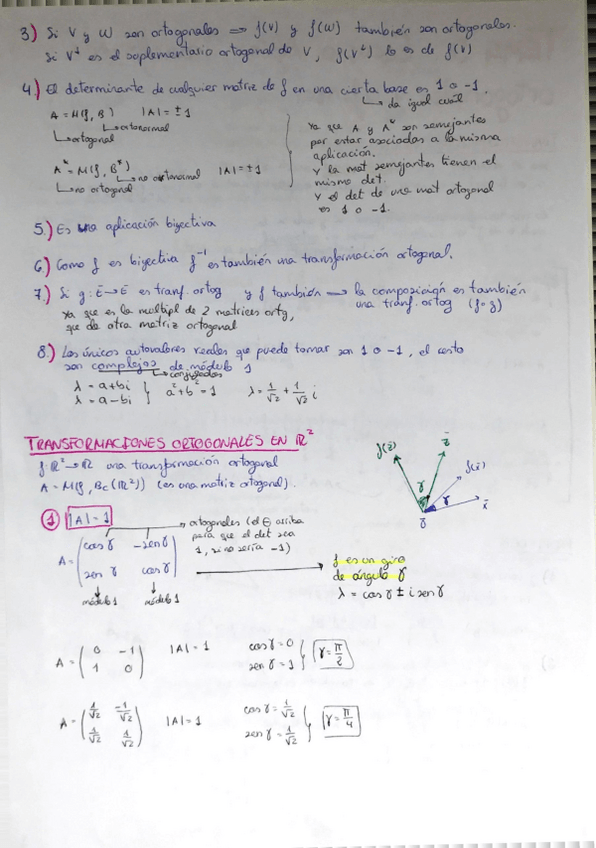 3.) Si V y W son ortogonales ⟹ f(V) y f(W) también son ortogonales.
Si V⊥ es el suplementario ortogonal de V, f(V⊥) lo es de f(V)
4.) El determinante de cualquier matriz de f en una cierta base es 1 o -1.
↳ da igual cuál
A = M(f, B) |A| = ±1
↳ ortonormal
↳ ortogonal
A* = M(f, B*) |A| = ±1
↳ no ortonormal
↳ no ortogonal
Ya que A y A* son semejantes
por estar asociadas a la misma
aplicación.
Y la mat semejantes tienen el
mismo det.
Y el det de una mat ortogonal
es 1 o -1.
5.) Es una aplicación biyectiva
6.) Como f es biyectiva f⁻¹ es también una transformación ortogonal.
7.) Si g: E → E es transf. ortog y f también → la composición es también
una transf. ortog (f∘g)
Ya que es la multipl de 2 matrices ortg,
que da otra matriz ortogonal
8.) Los únicos autovalores reales que puede tomar son 1 o -1, el resto
son complejos de módulo 1
↳ conjugados
λ = a+bi
λ = a-bi } a² + b² = 1 λ = 1/√2 + 1/√2 i
TRANSFORMACIONES ORTOGONALES EN ℝ²
f: ℝ² → ℝ una transformación ortogonal
A = M(f, Bc(ℝ²)) (es una matriz ortogonal).
f(z̄) z̄
f(x̄)
γ γ x̄
① |A| = 1
→ ortogonales (el ⊖ arriba
para que el det sea
1, si no sería -1)
A = (cos γ -sen γ
sen γ cos γ)
módulo 1 módulo 1
f es un giro
de ángulo γ
λ = cos γ ± i sen γ
A = (0 -1
1 0) |A| = 1 cos γ = 0
sen γ = 1 } γ = π/2
A = (1/√2 -1/√2
1/√2 1/√2) |A| = 1 cos γ = 1/√2
sen γ = 1/√2 } γ = π/4